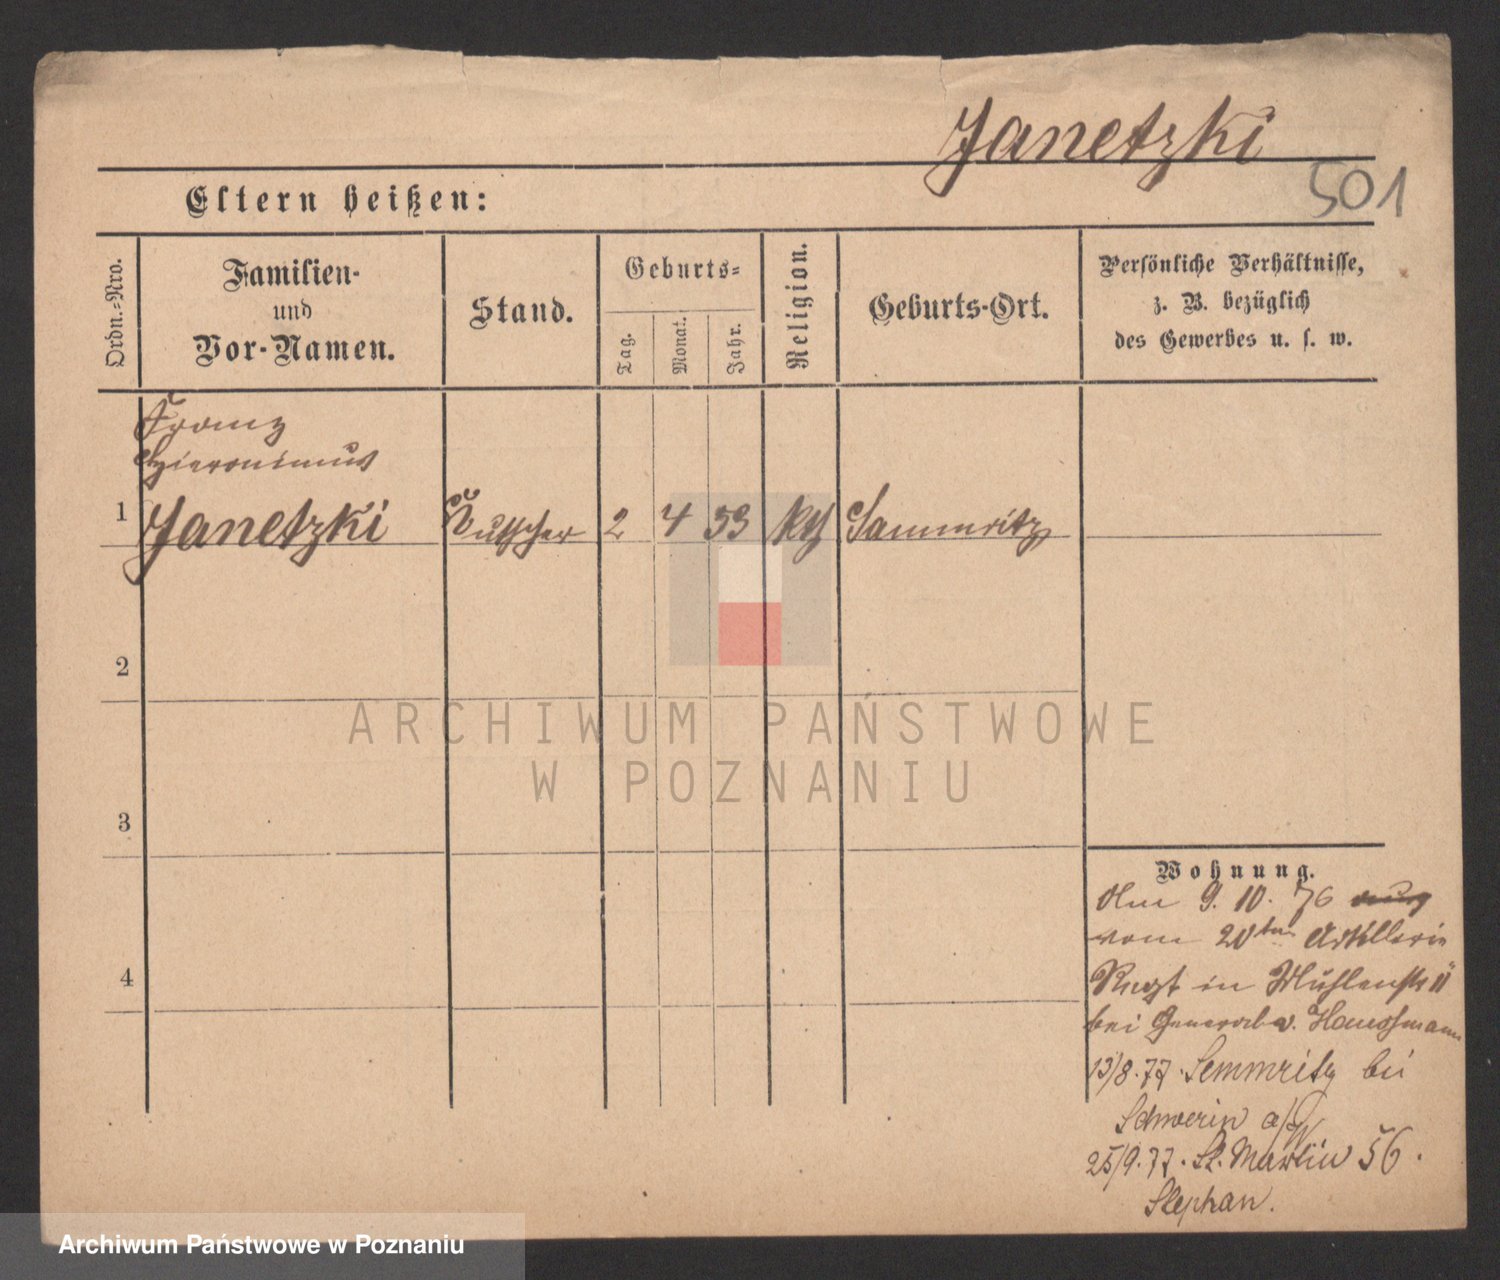 Janetzki
501
Eltern heißen:
Ordn.-Nro.
Familien-
und
Vor-Namen.
Stand.
Geburts-
Tag.
Monat.
Jahr.
Religion.
Geburts-Ort.
Persönliche Verhältnisse,
z. B. bezüglich
des Gewerbes u. s. w.
Franz
Hieronimus
1 Janetzki Kutscher 2 4 53 kth Sammritz
2
3
4
Wohnung.
Am 9. 10. 76
vom 20ten Artillerie
Regt in Mühlenstr 11
bei General v.
13/8.77. Semmritz bei
Schwerin a/W
25/9.77. St. Martin 56.
Stephan.
ARCHIWUM PAŃSTWOWE
W POZNANIU
Archiwum Państwowe w Poznaniu